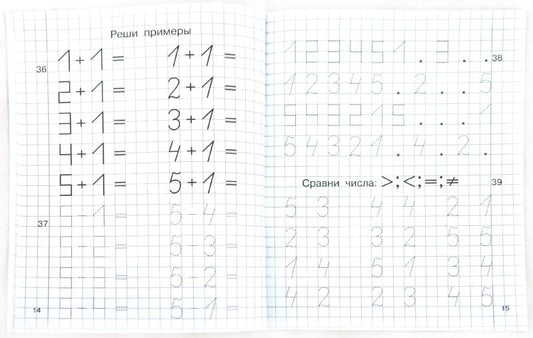 Реши примеры
36
1+1= 1+1=
2+1= 2+1=
3+1= 3+1=
4+1= 4+1=
5+1= 5+1=
37
5-1= 5-4=
5-2= 5-3=
5-3= 5-2=
5-4= 5-1=
14
38
1 2 3 4 5 1 . 3 . .
1 2 3 4 5 . 2 . . 5
5 4 3 2 1 5 . . . 1
5 4 3 2 1 . 4 . 2 .
Сравни числа: >;<;=;≠ 39
5 3 4 4 2 1
2 3 3 2 5 5
1 4 5 1 3 4
4 2 2 3 4 5
15